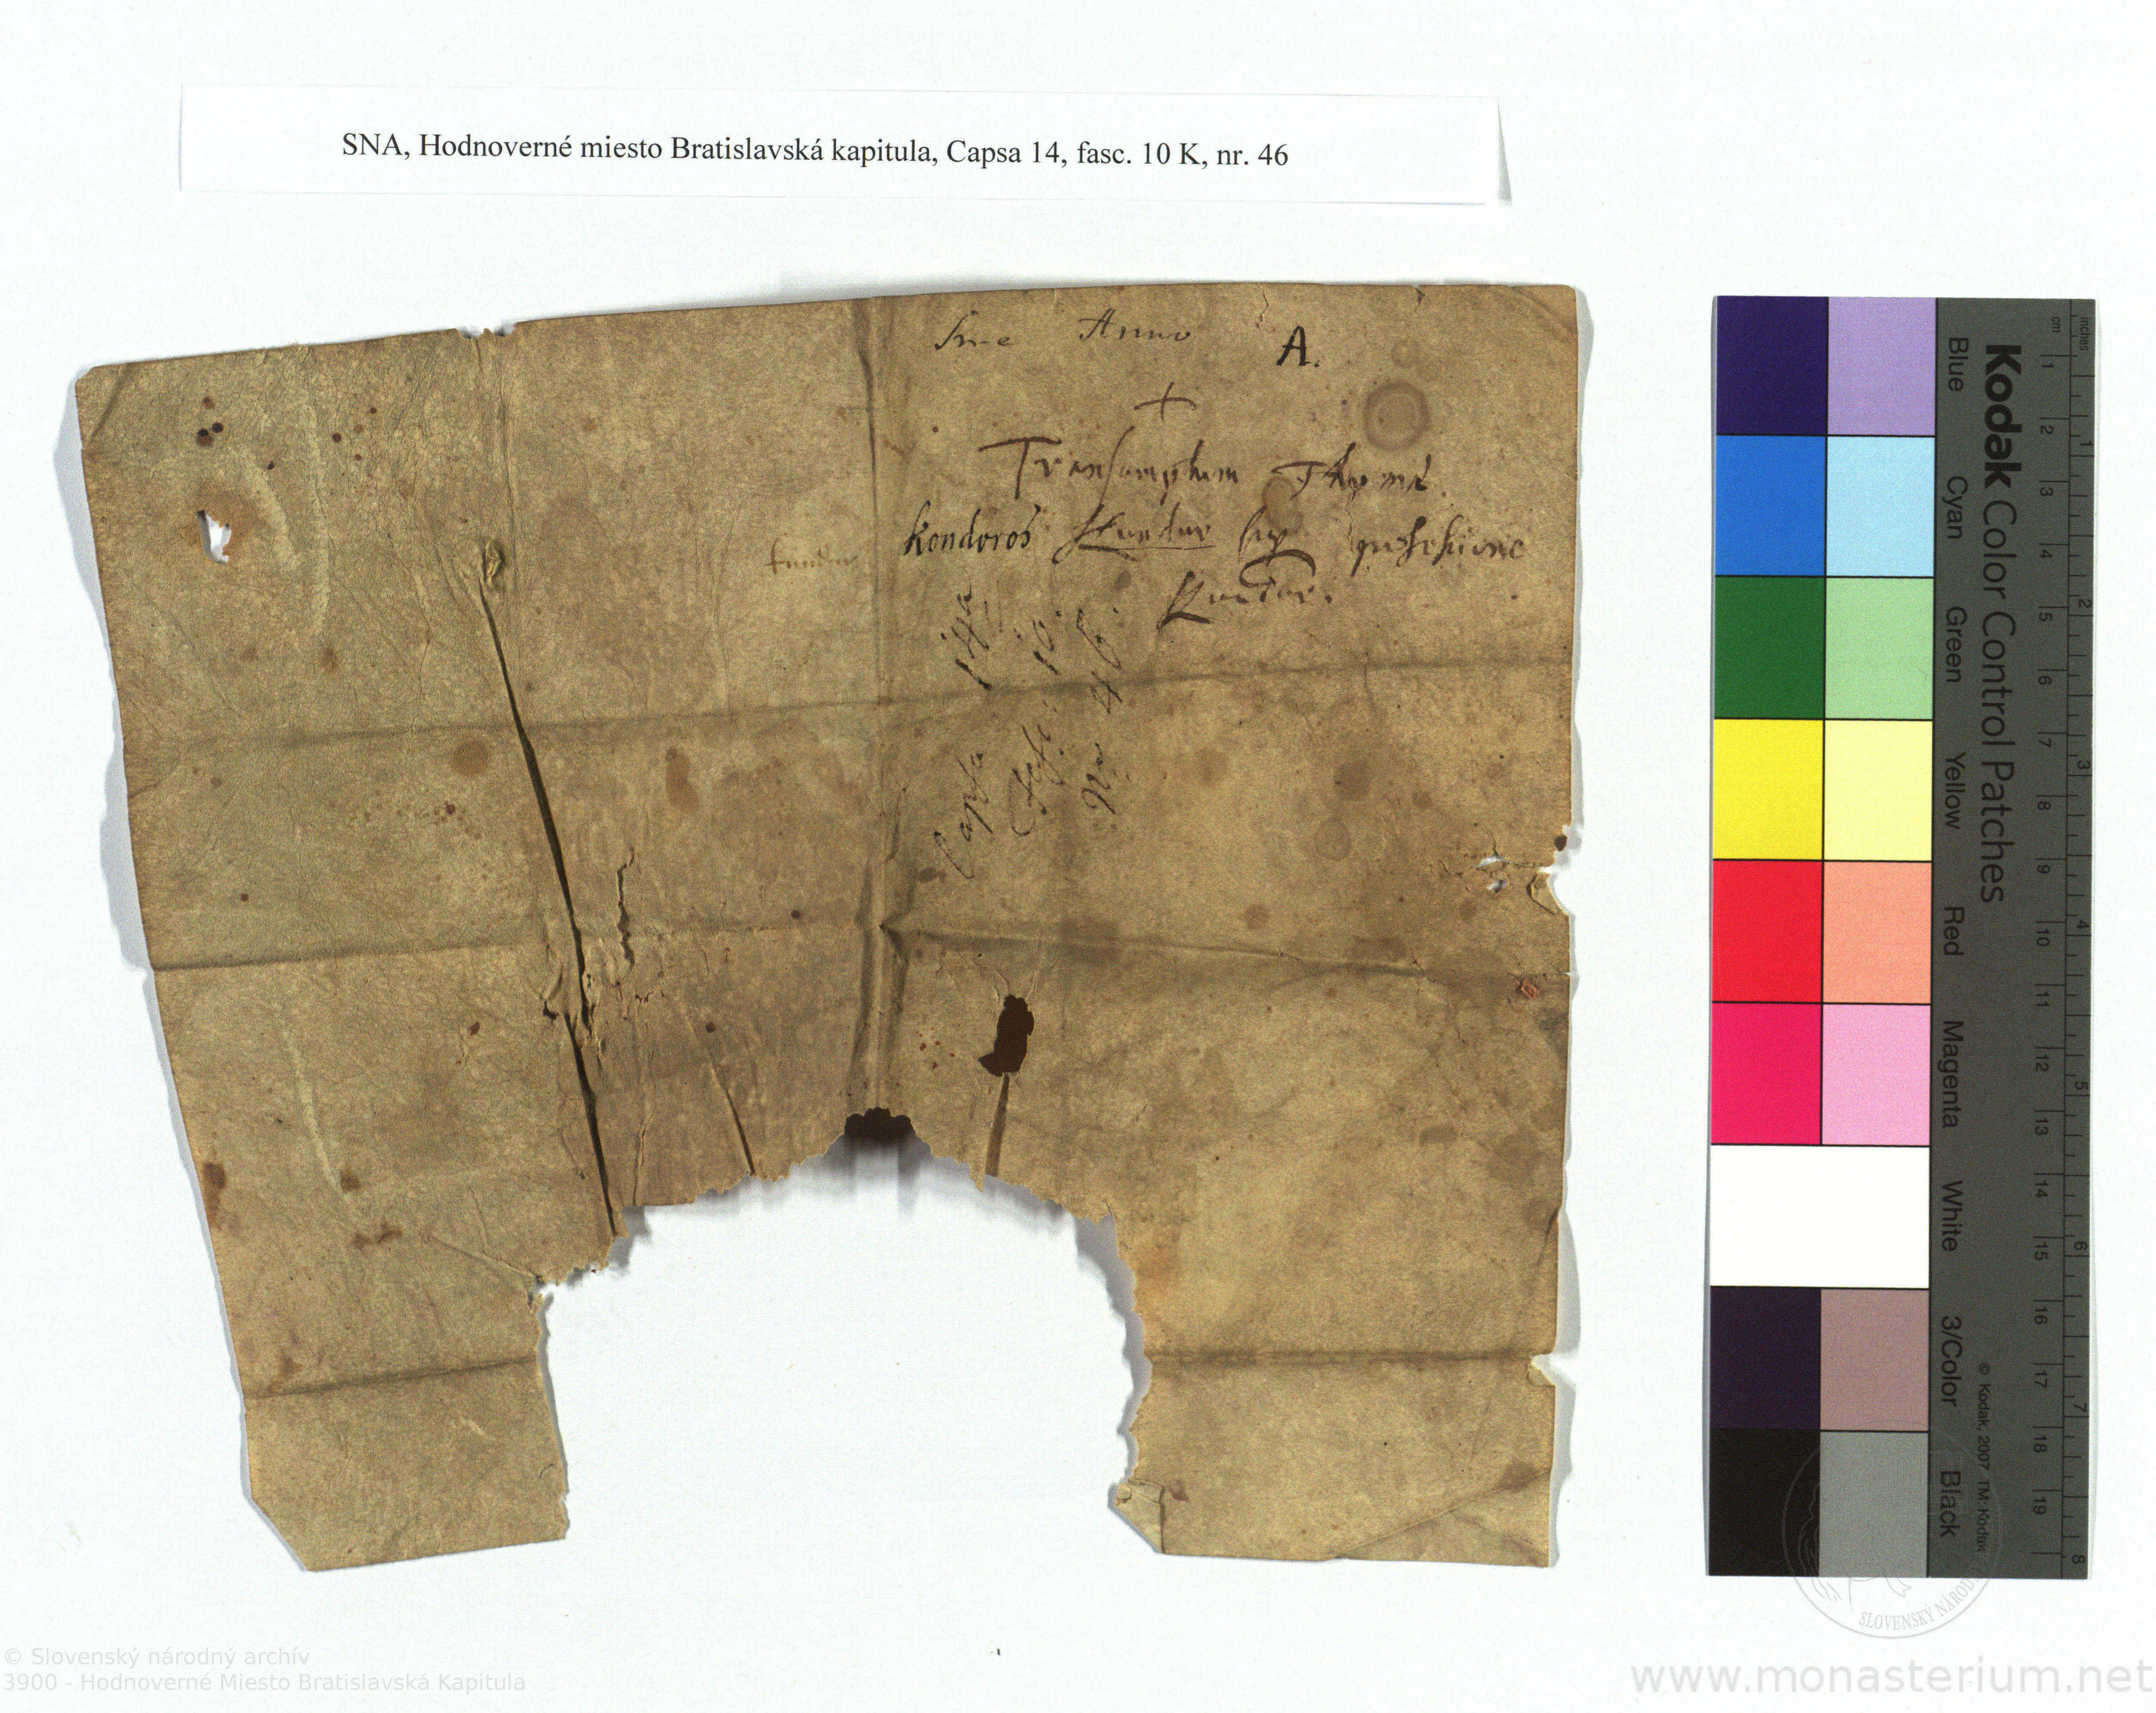 SNA, Hodnoverné miesto Bratislavská kapitula, Capsa 14, fasc. 10 K, nr. 46
Sine Anno A.
+
Transsumptum
Kondoros Kundur sup
Kundur.
Capsa 14ta
Fasc: 10.
Nro 46.
Kodak Color Control Patches
Blue Cyan Green Yellow Red Magenta White 3/Color Black
© Kodak, 2007 TM: Kodak
inches 1 2 3 4 5 6 7 8
cm 1 2 3 4 5 6 7 8 9 10 11 12 13 14 15 16 17 18 19
SLOVENSKÝ NÁROD
© Slovenský národný archív
3900 - Hodnoverné Miesto Bratislavská Kapitula
www.monasterium.net